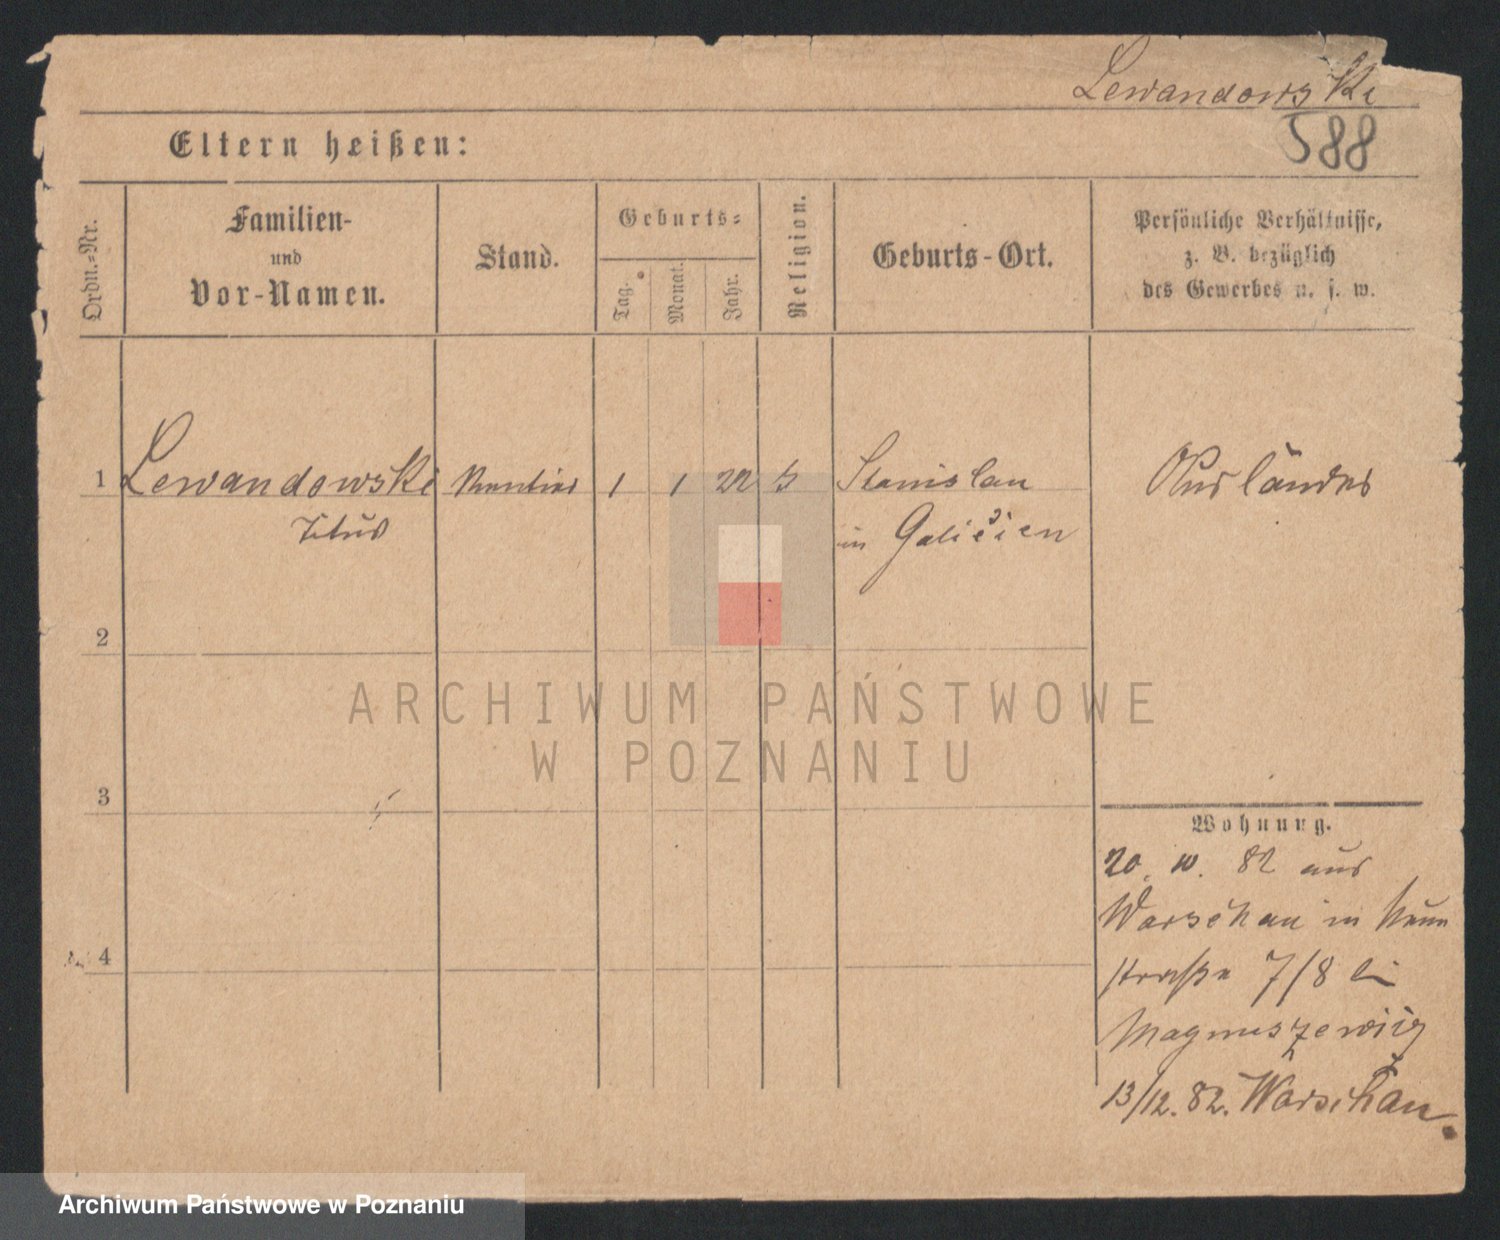 Lewandowski
588
Eltern heißen:
Ordn.-Nr.
Familien-
und
Vor-Namen.
Stand.
Geburts-
Tag.
Monat.
Jahr.
Religion.
Geburts-Ort.
Persönliche Verhältnisse,
z. B. bezüglich
des Gewerbes u. s. w.
1 Lewandowski Rentier 1 1 22 Stanislau Ausländer
Titus in Galicien
2
ARCHIWUM PAŃSTWOWE
W POZNANIU
3
Wohnung.
20. 10. 82 aus
Warschau in
straße 7/8 bei
Magnuszewicz
4
13/12. 82. Warschau.
Archiwum Państwowe w Poznaniu